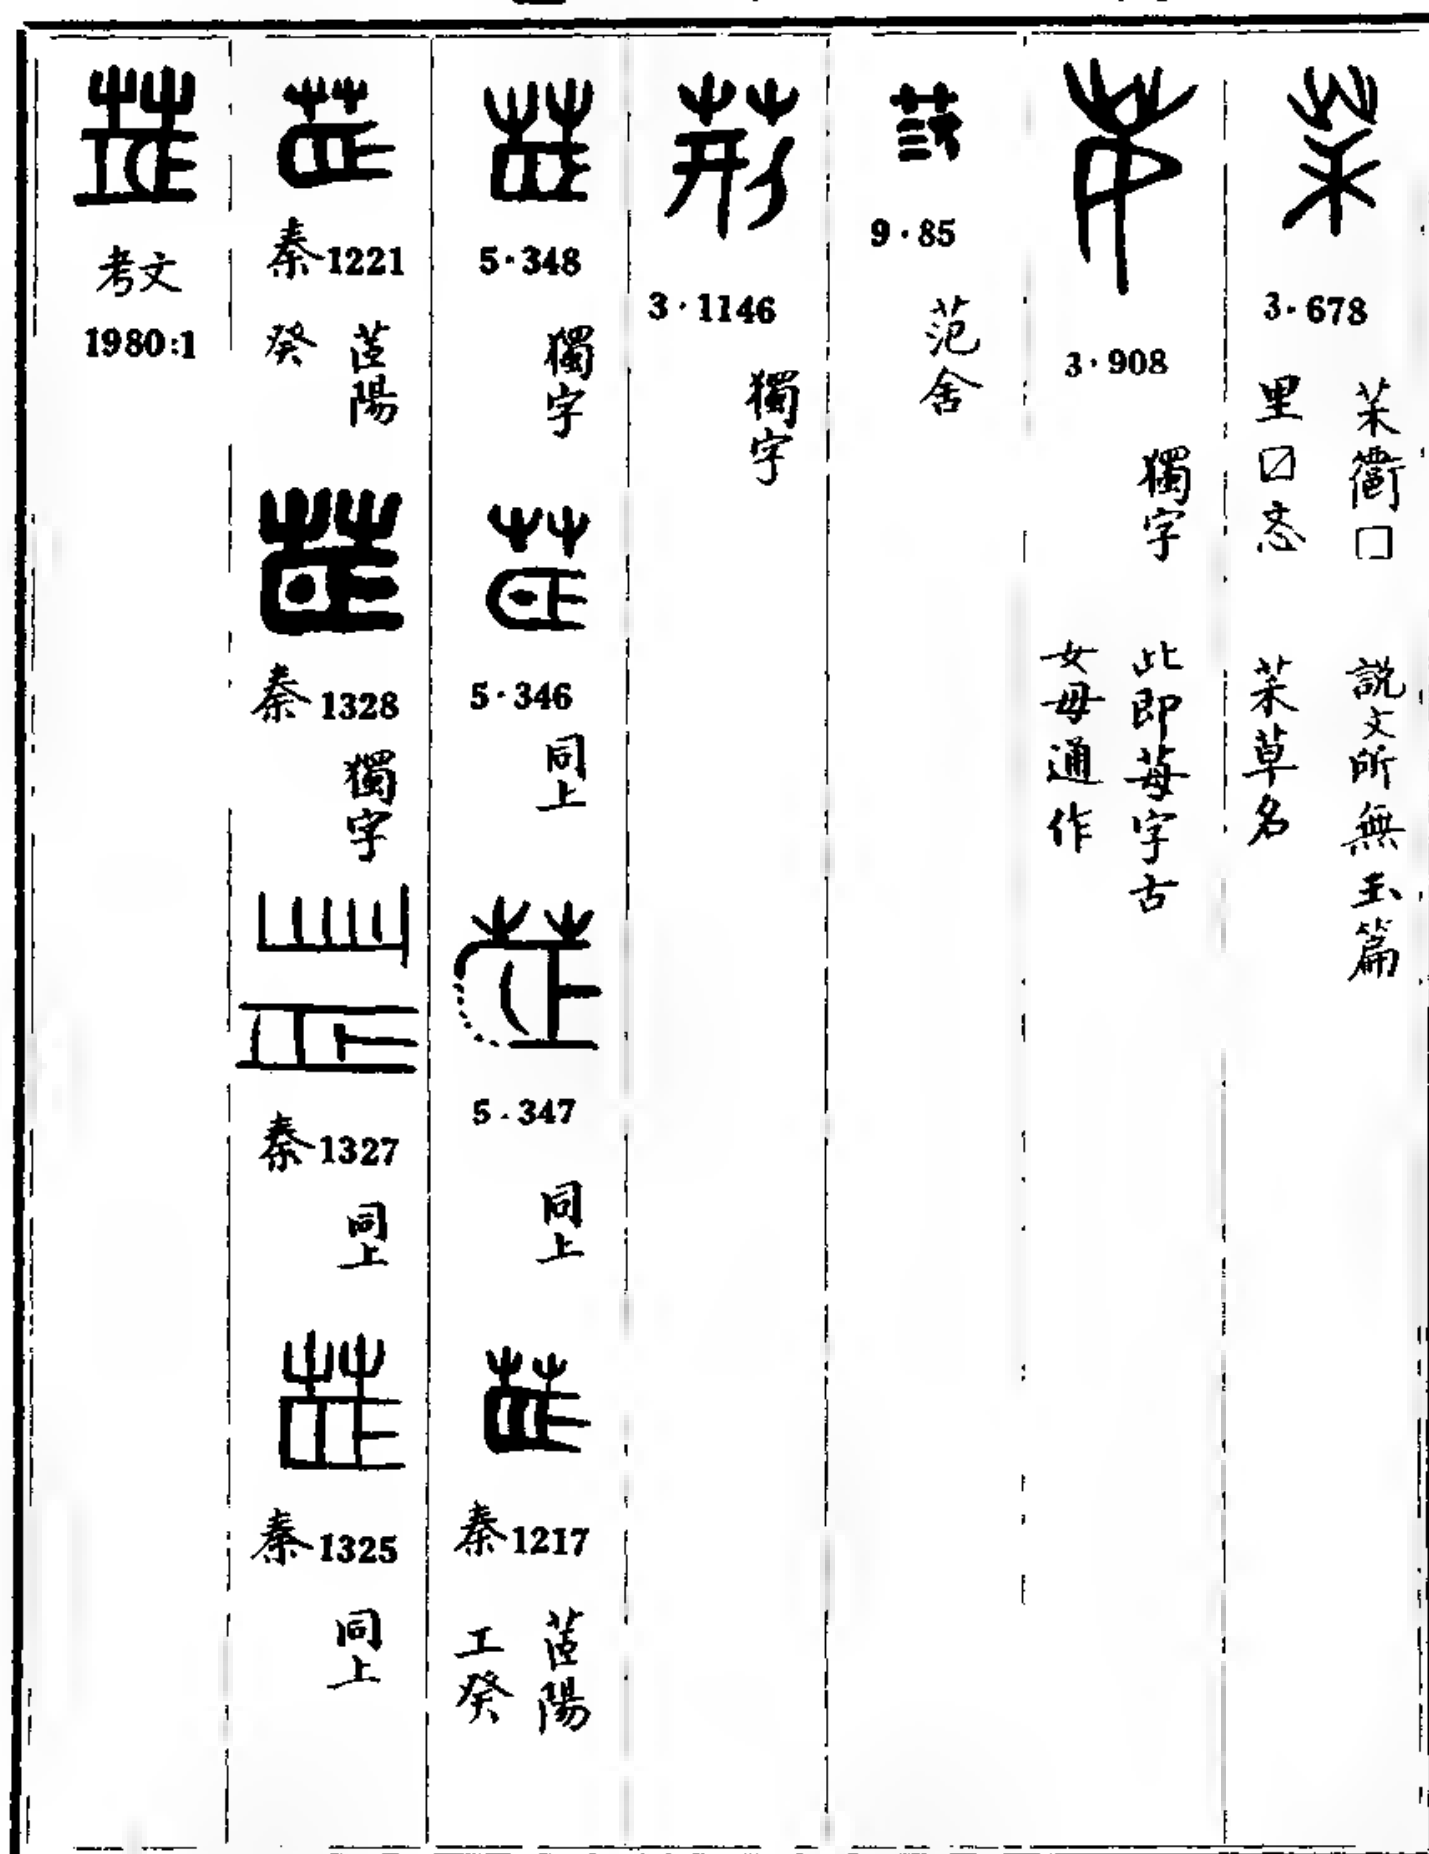 3·678
茮衢□
里☑忞
説文所無玉篇
茮草名
3·908
獨字
此即莓字古
女母通作
9·85
范舍
3·1146
獨字
5·348
獨字
5·346
同上
5·347
同上
秦1217
茝陽
工癸
秦1221
茝陽
癸
秦1328
獨字
秦1327
同上
秦1325
同上
考文
1980:1